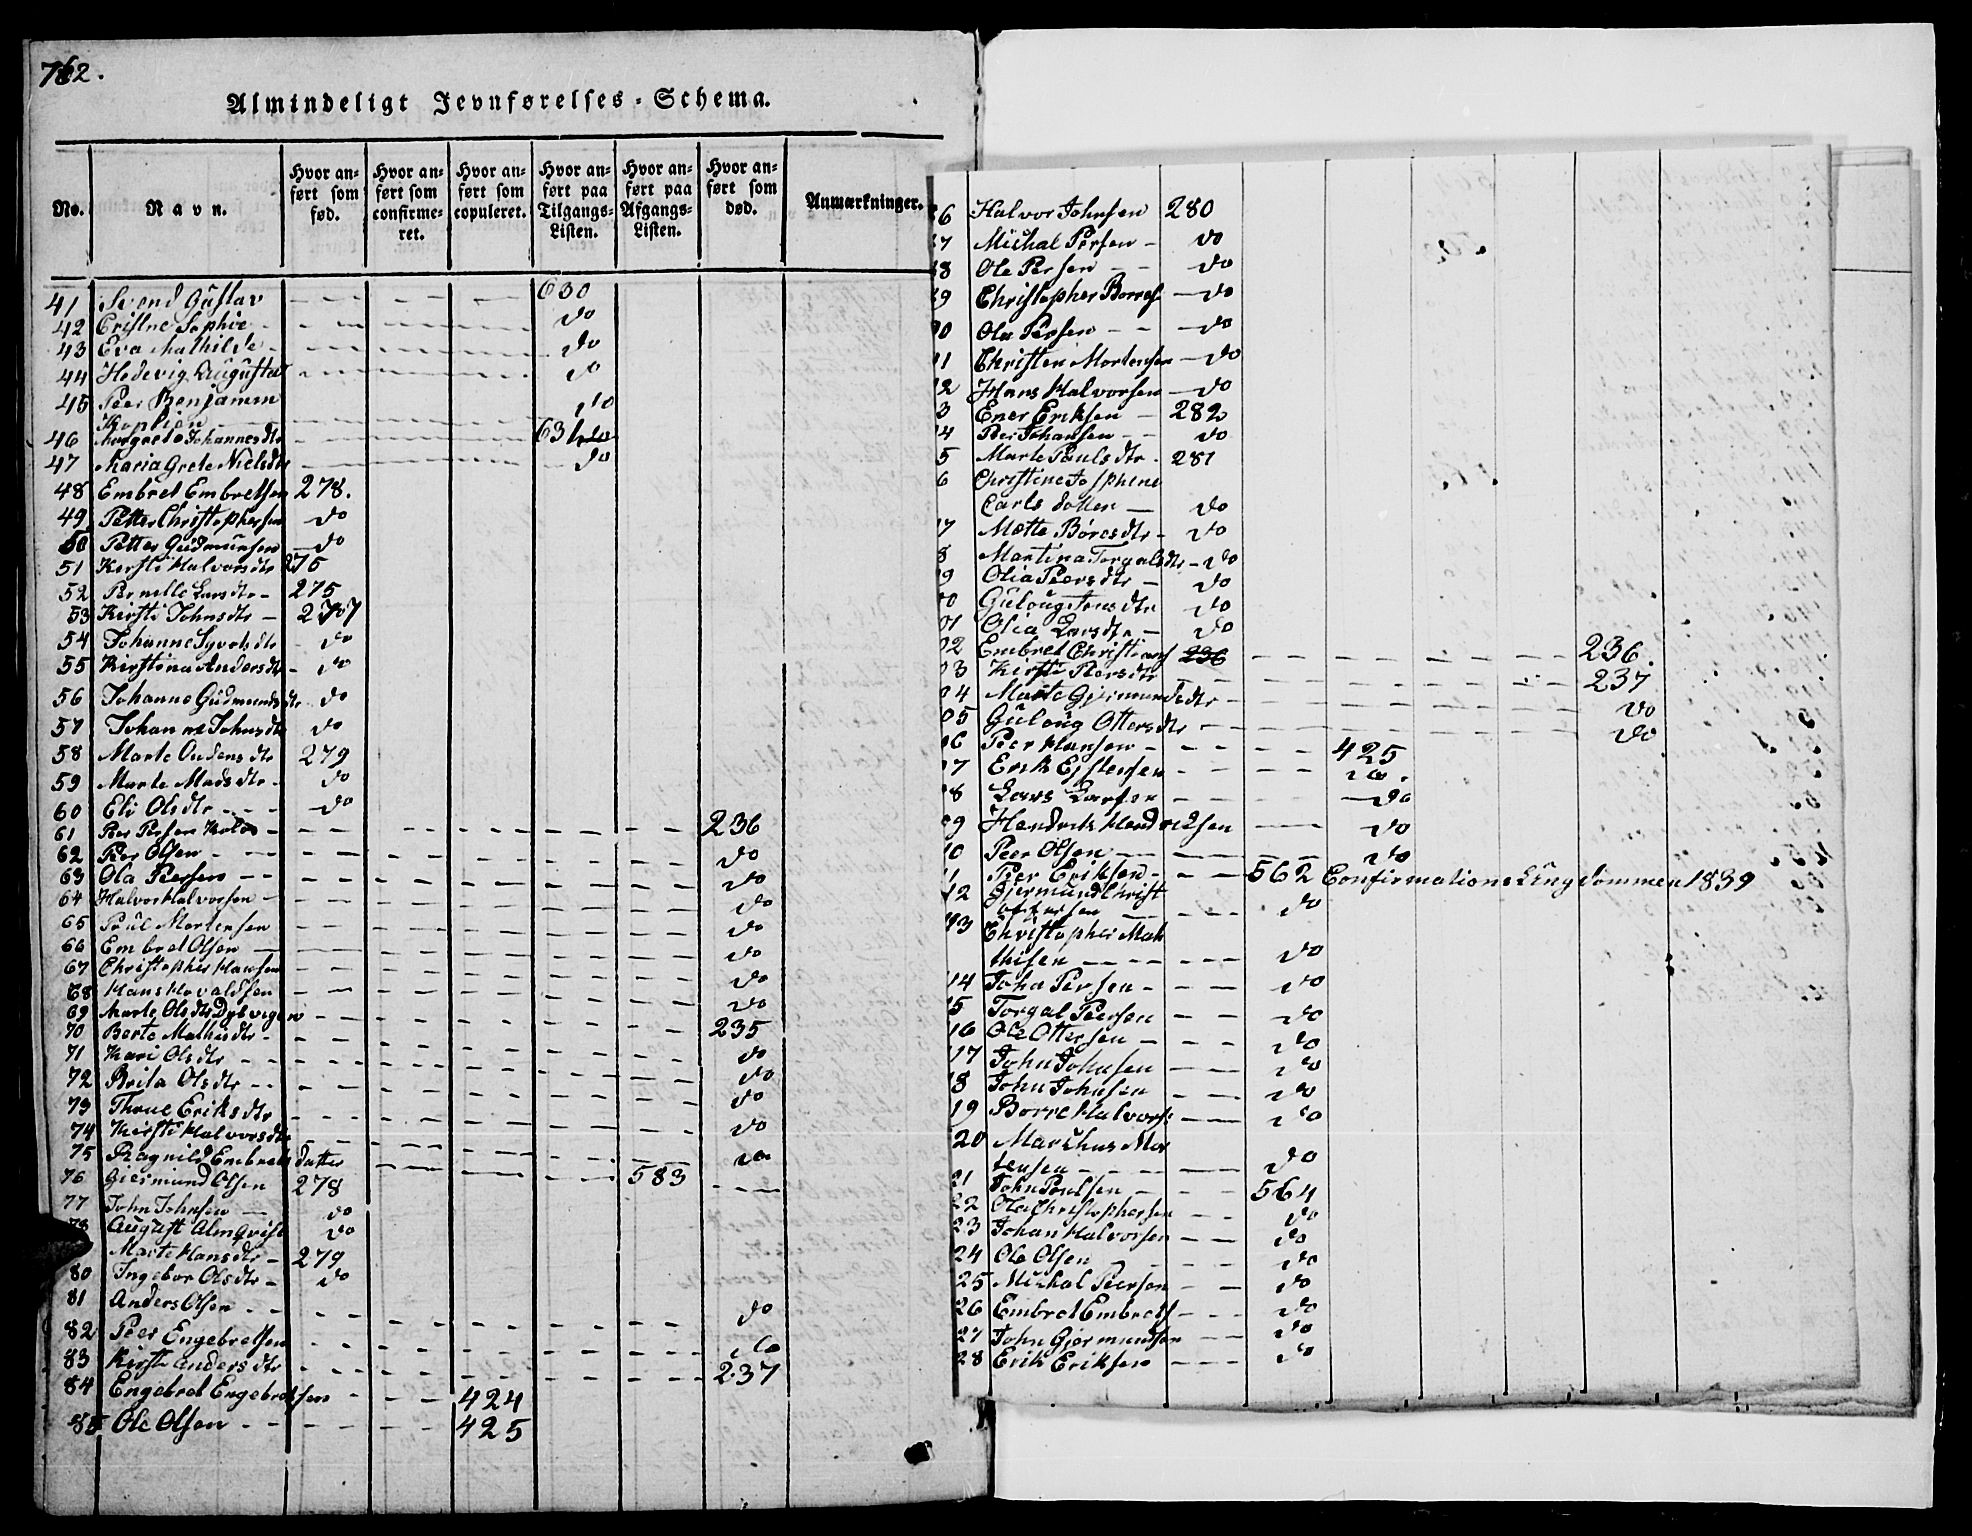 762.
Almindeligt Jevnførelses-Schema.
No. Navn. Hvor anført som fød. Hvor anført som confirmeret. Hvor anført som copuleret. Hvor anført paa Tilgangs-Listen. Hvor anført paa Afgangs-Listen. Hvor anført som død. Anmærkninger.
41 Svend Gustav 630
42 Cristne Sophie do
43 Eva Mathilde do
44 Hedevig Augusta do
45 Peer Benjamin do
46 Margrete Johannesdtr 631
47 Maria Grete Nielsdtr do
48 Embret Embretsen 278.
49 Petter Christophersen do
50 Petter Gudmunsen do
51 Kirsti Halvorsdtr 275
52 Pernille Larsdtr 275
53 Kirsti Johnsdtr 277
54 Johanne Syvertsdtr do
55 Kirstina Andersdtr do
56 Johanne Gudmundsdtr do
57 Johanne Johnsdtr do
58 Marte Oudensdtr 279
59 Marte Madsdtr do
60 Eli Olsdtr do
61 Peer Persen Kolos 236
62 Peer Olsen do
63 Ola Peersen do
64 Halvor Halvorsen do
65 Poul Mortensen do
66 Embret Olsen do
67 Christopher Hansen do
68 Hans Hovaldsen do
69 Marte Olsdtr Dybvigen 235
70 Berte Mathisdtr do
71 Kari Olsdtr do
72 Brita Olsdtr do
73 Thrue Eriksdtr do
74 Kirsti Halvorsdtr do
75 Ragnild Embrets datter 583
76 Giermund Olsen 278
77 John Johnsen do
78 August Almqvist do
Marte Hansdtr 279
80 Ingebor Olsdtr do
81 Anders Olsen do
82 Peer Engebretsen do
83 Kirsti Andersdtr 237
84 Engebret Engebretsen 424
85 Ole Olsen 425
86 Halvor Johnsen 280
87 Michal Persen do
88 Ole Persen do
89 Christopher Borres do
90 Ola Persen do
91 Christen Mortensen do
92 Hans Halvorsen do
3 Ener Eriksen 282
4 Peer Johansen do
5 Marte Paulsdtr 281
6 Christine Josphine
Carls datter do
97 Mette Børesdtr do
8 Martina Torgalsdtr do
99 Olia Peersdtr do
00 Guloug Jensdtr do
01 Olia Larsdtr do
02 Embret Christians 236 236.
03 Kirsti Peersdtr 237
04 Marte Gjermundsdtr do
05 Guloug Ottersdtr do
06 Peer Hansen 425
07 Erik Ejstensen do.
08 Lars Larsen do
09 Hendrik Hendricksen do
10 Peer Olsen do
11 Peer Eriksen 562 Confirmations Ung dommen 1839
12 Gjermund Christ
ophersen do
13 Christopher Mat
thisen do
14 John Persen do
15 Torgal Peersen do
16 Ole Ottersen do
17 John Johnsen do
18 John Johnsen do
19 Borre Halvors do
20 Marthus Mor
tensen do
21 John Poulsen 564
22 Ole Christophersen do
23 Johan Halvorsen do
24 Ole Olsen do
25 Michal Peersen do
26 Embret Embrets do
27 John Gjermundsen do
28 Erik Eriksen do